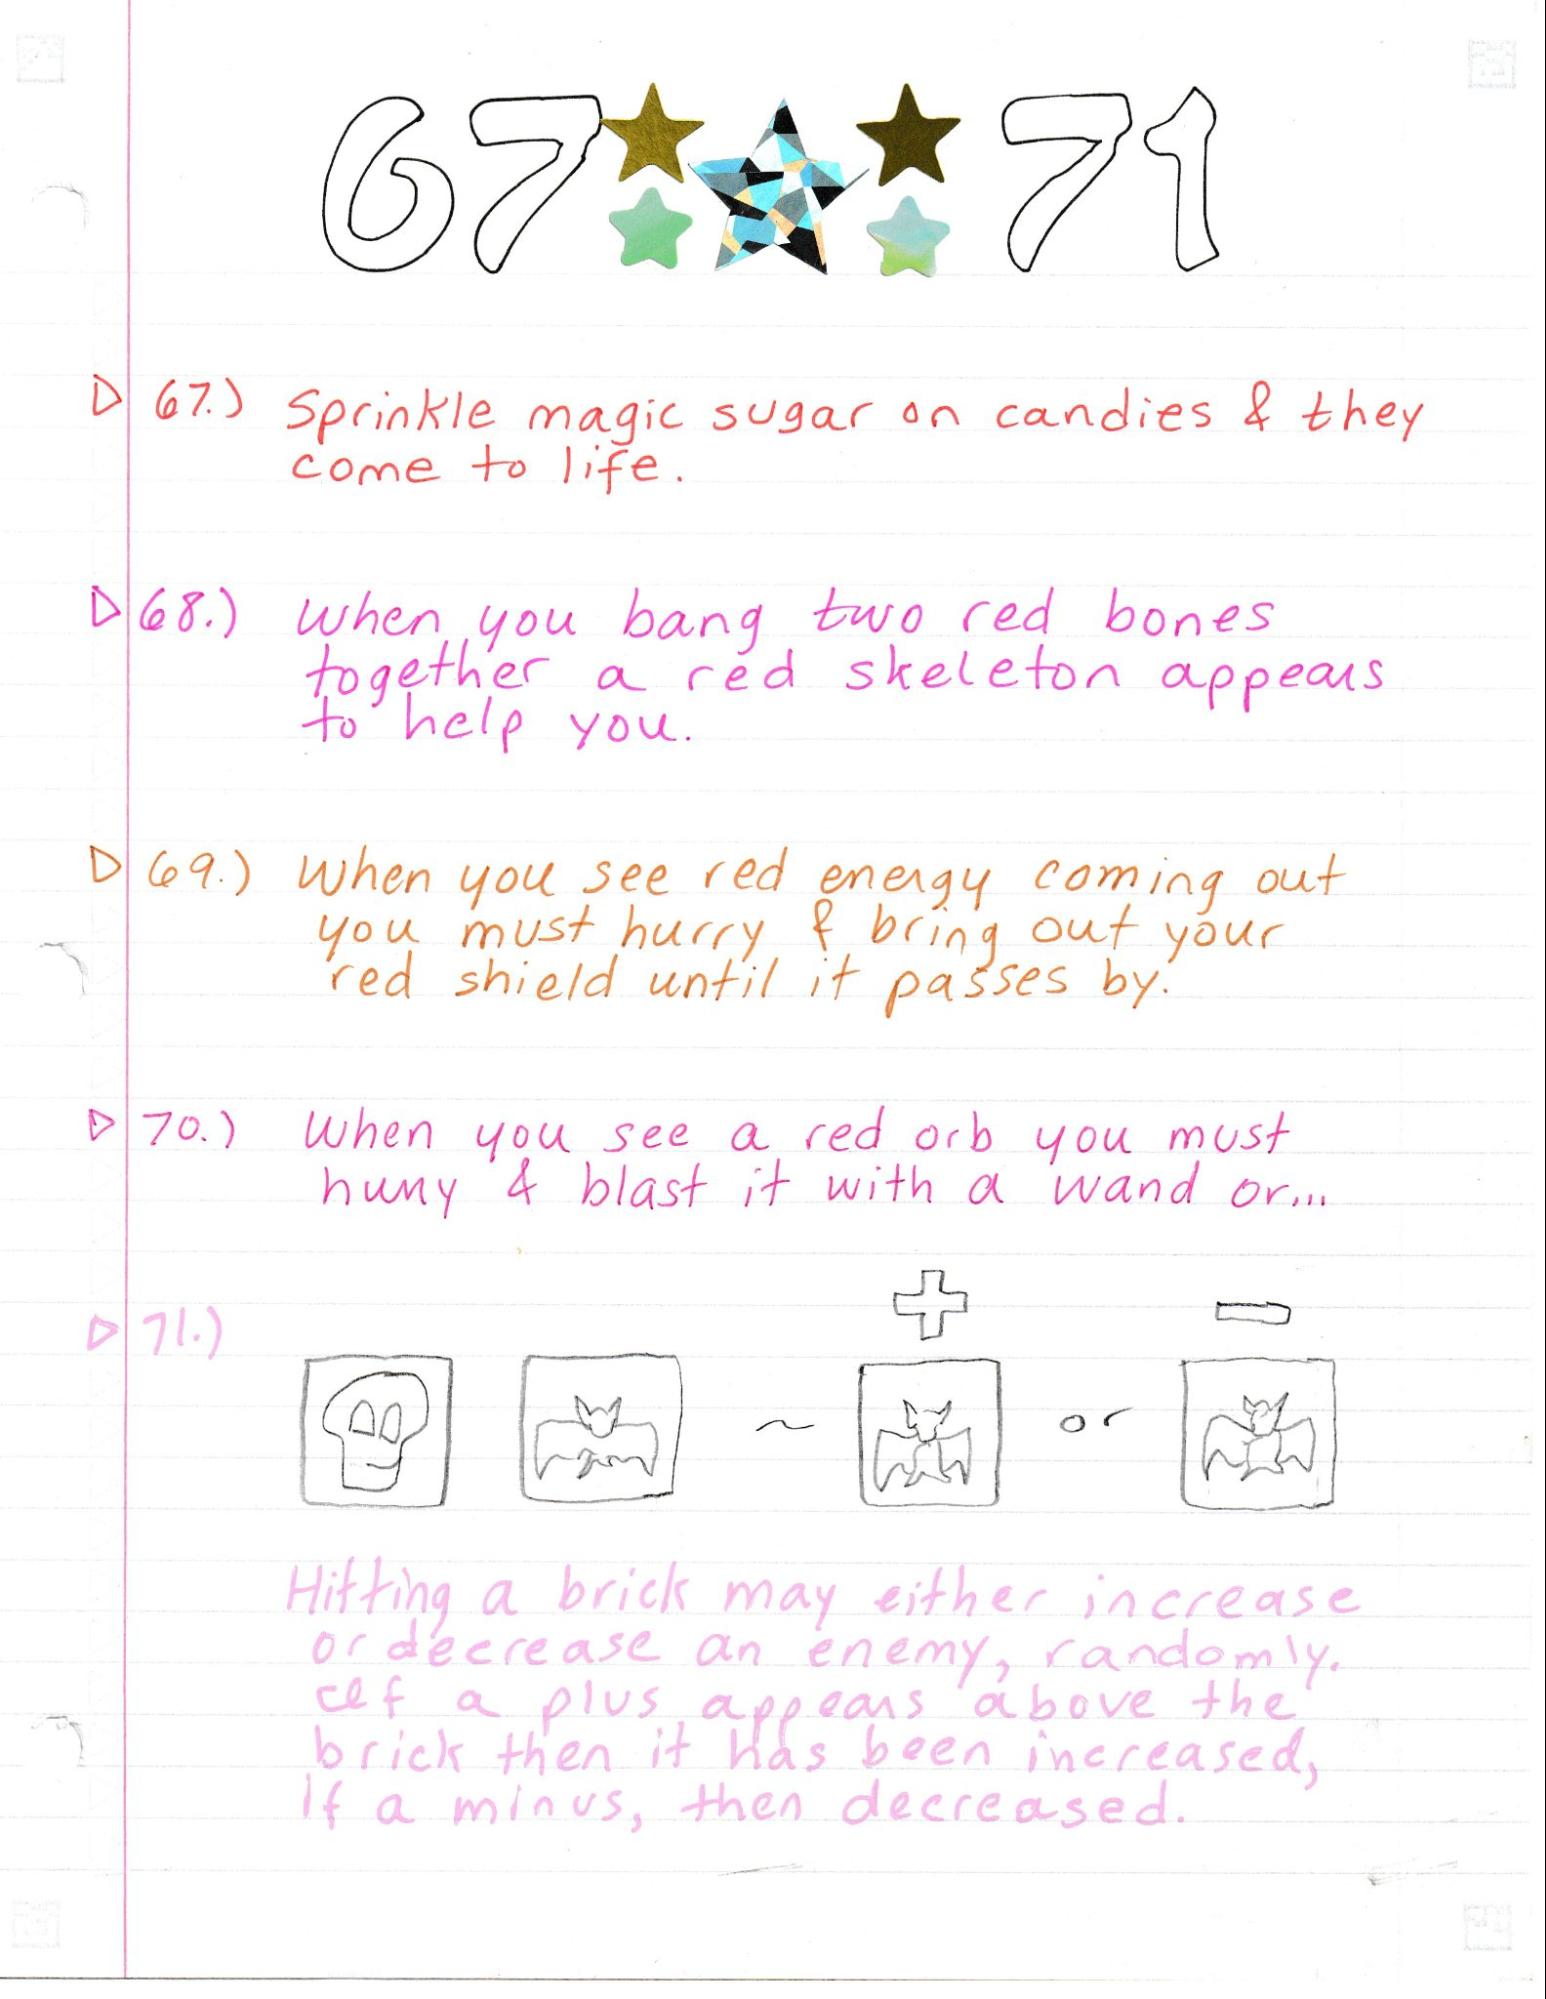 67 71
67.) Sprinkle magic sugar on candies & they
come to life.
68.) When you bang two red bones
together a red skeleton appears
to help you.
69.) When you see red energy coming out
you must hurry & bring out your
red shield until it passes by.
70.) When you see a red orb you must
hurry & blast it with a wand or...
71.)
+ -
~ or
Hitting a brick may either increase
or decrease an enemy, randomly.
If a plus appears above the
brick then it has been increased,
if a minus, then decreased.